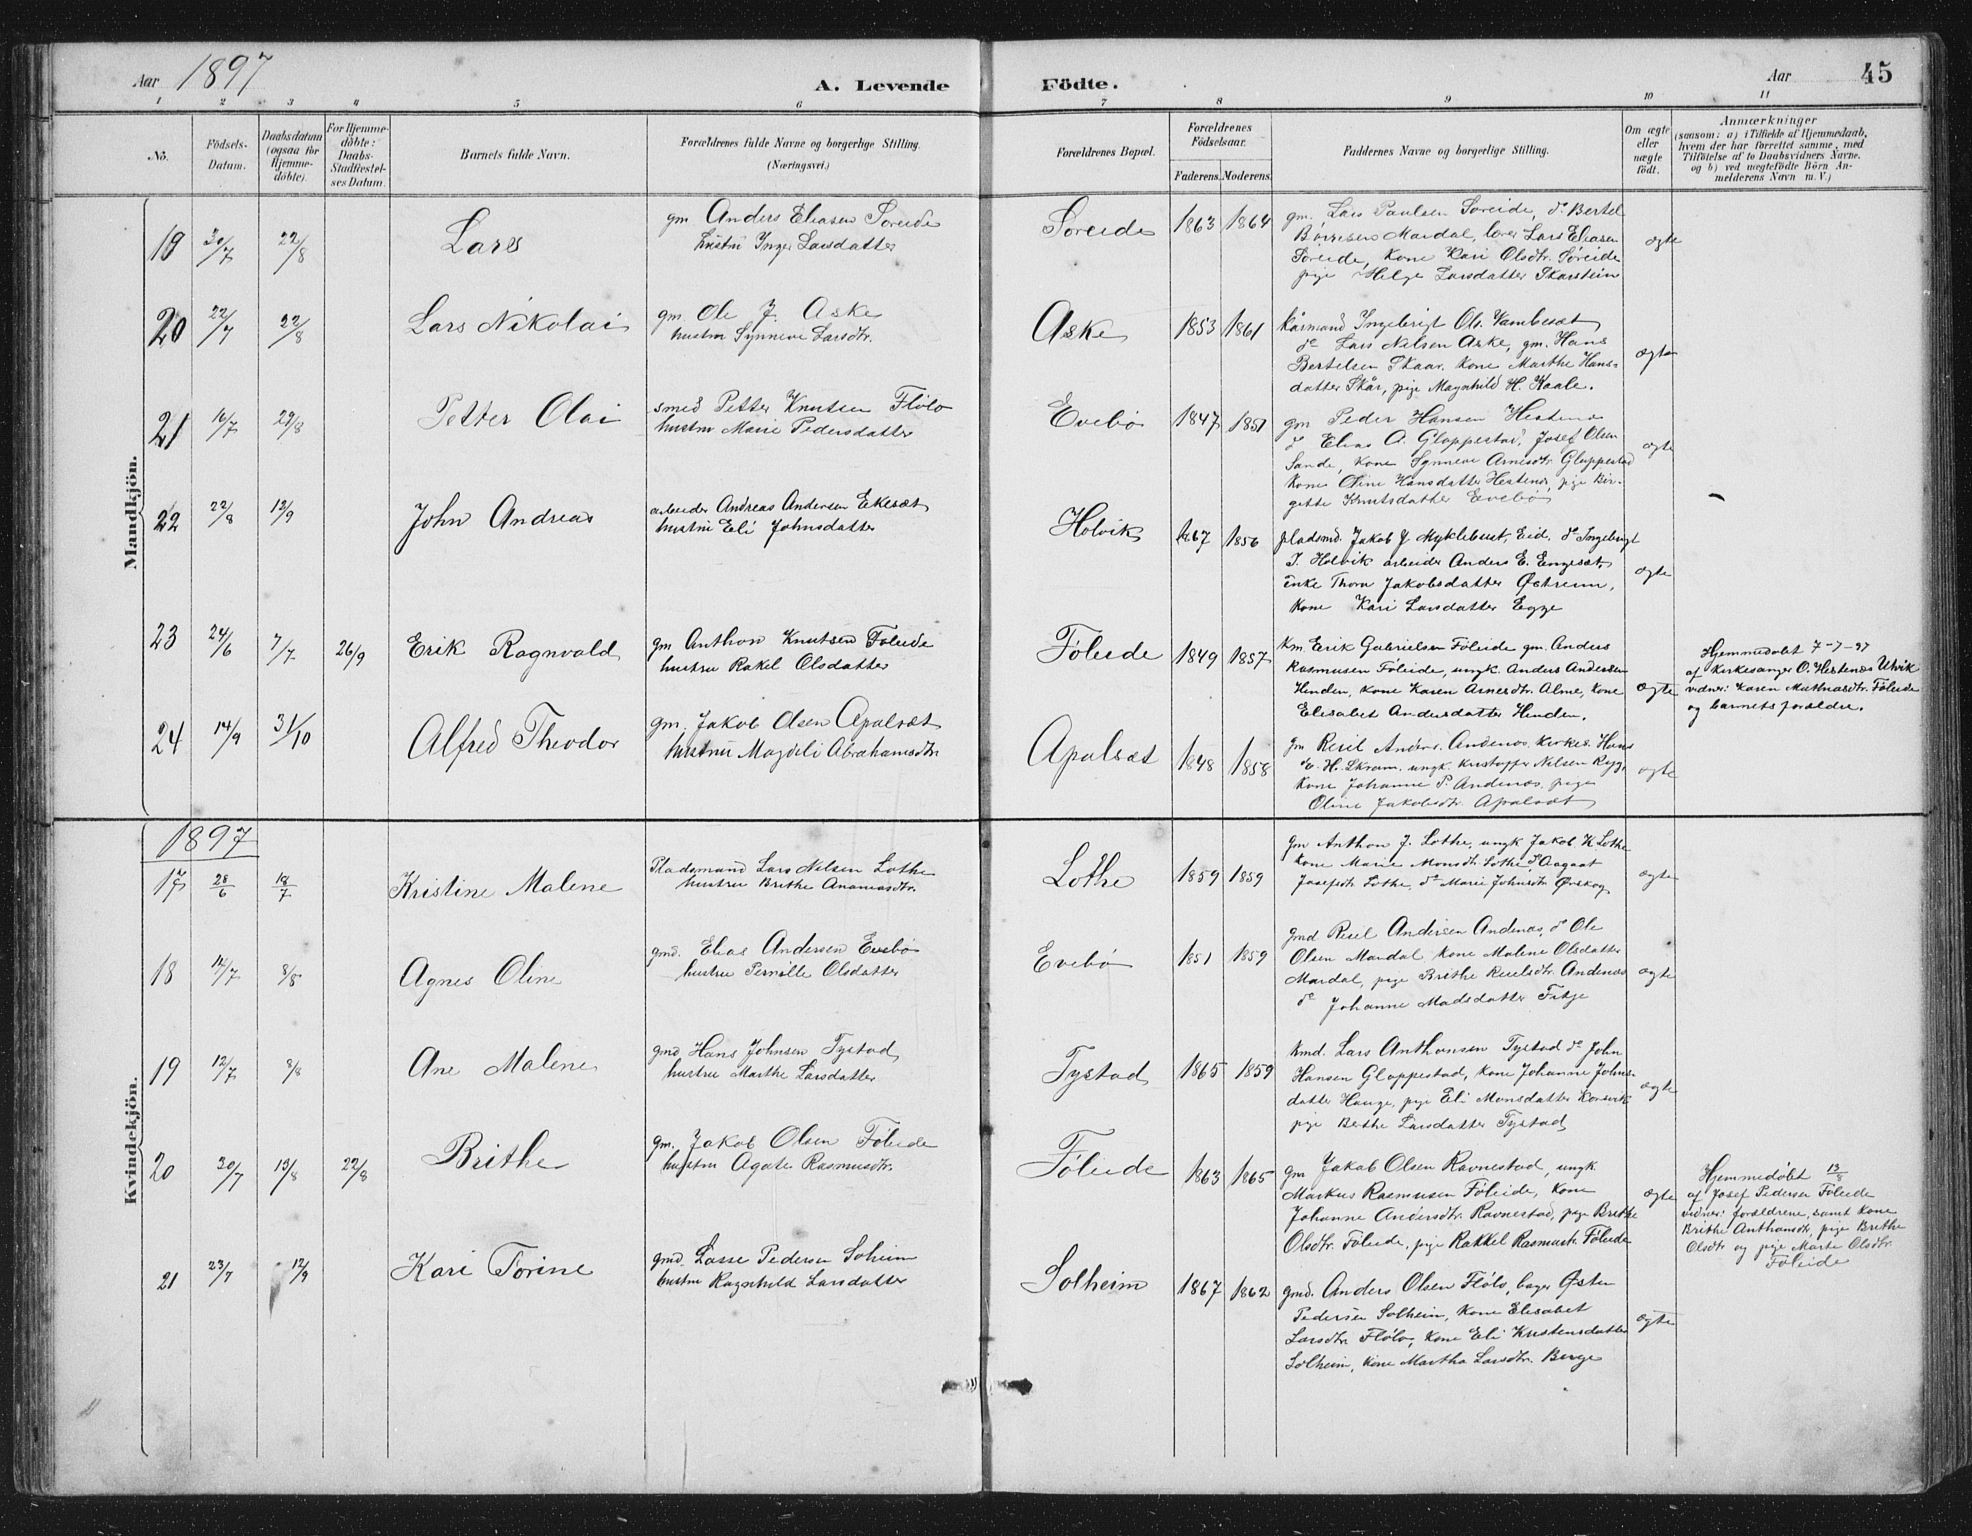 Aar 1897 A. Levende Födte. Aar 45
1 2 3 4 5 6 7 8 9 10 11
No.
Födsels-Datum.
Daabsdatum (ogsaa for Hjemme-döbte).
For Hjemme-döbte: Daabs-Stadfæstel-ses Datum.
Barnets fulde Navn.
Forældrenes fulde Navne og borgerlige Stilling.
(Næringsvei.)
Forældrenes Bopæl.
Forældrenes Födselsaar.
Faderens. Moderens.
Faddernes Navne og borgerlige Stilling.
Om ægte eller uægte födt.
Anmærkninger
(saasom: a) i Tilfælde af Hjemmedaab,
hvem der har forrettet samme, med
Tilföielse af to Daabsvidners Navne,
og b) ved uægtefödte Börn An-
melderens Navn m. V.)
Mandkjön.
19 30/7 22/8 Lars
gm Anders Eliasen Soreide
hustru Inger Larsdatter
Soreide 1863 1864
gm. Lars Paulsen Soreide, do Bertel
Börresen Mardal, lærer Lars Eliasen
Soreide, kone Kari Olsdtr. Soreide
pige Helge Larsdatter Skarstein
ægte
20 22/7 22/8 Lars Nikolai
gm. Ole J. Aske
hustru Synneve Larsdtr.
Aske 1853 1861
kårmand Ingebrigt Ols. Vambeset
do Lars Nilsen Aske, gm. Hans
Bertelsen Skaar, kone Marthe Hans-
datter Skår, pige Magnhild H. Kaale.
ægte
21 16/7 29/8 Petter Olai
smed Petter Knutsen Flölo
hustru Marie Pedersdatter
Evebö 1847 1851
gm Peder Hansen Hestenes
do Elias A. Gloppestad, Josef Olsen
Sande, kone Synneve Arnesdtr. Gloppestad
kone Oline Hansdatter Hestenes, pige Bir-
gitte Knutsdatter Evebö
ægte
22 22/8 12/9 John Andreas
arbeider Andreas Andersen Ekeset
hustru Eli Johnsdatter
Holvik 1867 1856
pladsmd. Jakob J Myklebust, Eid. do Ingebrigt
J. Holvik arbeider Anders E. Engeset,
enke Thora Jakobsdatter Östrem,
kone Kari Larsdatter Egge
ægte
23 24/6 7/7 26/9 Erik Ragnvald
gm Anthon Knutsen Föleide
hustru Rakel Olsdatter
Föleide 1849 1857
km. Erik Gabrielsen Föleide gm. Anders
Rasmusen Föleide, ungk. Anders Andersen
Henden, kone Karen Arnesdtr. Alme, kone
Elisabet Andersdatter Henden.
ægte
Hjemmedöbt 7-7-97
af kirkesanger O. Hestenes Utvik
vidner: Karen Mathiasdtr. Föleide
og barnets forældre.
24 14/9 31/10 Alfred Theodor
gm. Jakob Olsen Apalset
hustru Magdeli Abrahamsdtr.
Apalset 1848 1858
gm Resel Anders. Andenæs, kirkes. Hans
E. H. Skram, ungk. Kristoffer Nilsen Ryg,
kone Johanne P. Andenæs, pige
Oline Jakobsdtr. Apalset
ægte
Kvindekjön.
1897
17 28/6 18/7 Kristine Malene
Pladsmand Lars Nilsen Lothe
hustru Brithe Ananiasdtr.
Lothe 1859 1859
gm Anthon J. Lothe, ungk Jakob K Lothe
kone Marie Monsdtr. Lothe, do Aagaat
Josefsdtr Lothe, do Marie Johnsdtr Örskog
ægte
18 14/7 8/8 Agnes Oline
gmd. Elias Andersen Evebö
hustru Pernille Olsdatter
Evebö 1851 1859
Gmd Resel Andersen Andenæs, do Ole
Olsen Mardal, kone Malene Olsdatter
Mardal, pige Brithe Reselsdtr. Andenæs
do Johanne Madsdatter Fitje
ægte
19 12/7 8/8 Ane Malene
gmd Hans Johnsen Tystad
hustru Marthe Larsdatter
Tystad 1865 1859
kmd. Lars Anthonsen Tystad do John
Hansen Gloppestad, kone Johanne Johns-
datter Hauge, pige Eli Monsdatter Korsvik
pige Berthe Larsdatter Tystad
ægte
20 30/7 13/8 22/8 Brithe
gm. Jakob Olsen Föleide
hustru Agate Rasmusdtr.
Föleide 1863 1865
gm Jakob Olsen Ravnestad, ungk
Markus Rasmusen Föleide, kone
Johanne Andersdtr. Ravnestad, pige Brithe
Olsdtr. Föleide, pige Rakkel Rasmusdtr. Föleide
ægte
Hjemmedöbt 13/8
af Josef Pedersen Föleide
vidner: forældrene, samt kone
Brithe Anthonsdtr, pige Brethe
Olsdtr og pige Marte Olsdtr.
Föleide
21 23/7 12/9 Kari Torine
gmd. Lasse Pedersen Solheim
hustru Ragnhild Larsdatter
Solheim 1867 1862
gmd. Anders Olsen Flölo, bager Östen
Pedersen Solheim, kone Elisabet
Larsdtr Flölo, kone Eli Kristensdatter
Solheim, kone Martha Larsdtr. Berge
ægte